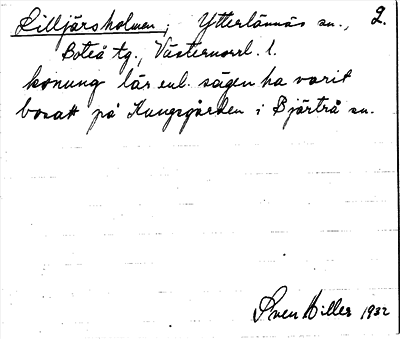 Lilljärsholmen, Ytterlännäs sn., 2.
Boteå tg., Västernorrl. l.
konung lär enl. sägen ha varit
bosatt på Kungsgården i Bjärtrå sn.
Sven Hiller 1932